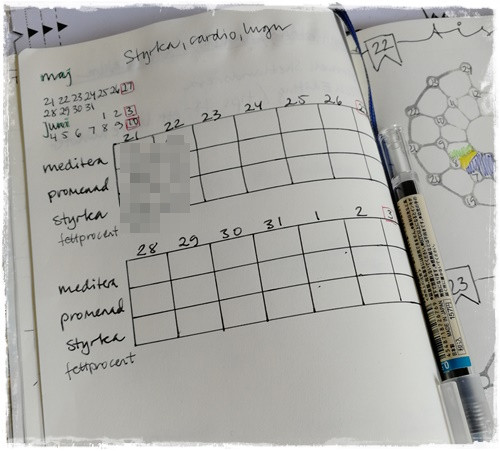 Styrka, cardio, lugn
maj
21 22 23 24 25 26 27
28 29 30 31 1 2 3
Juni 4 5 6 7 8 9 10
21 22 23 24 25 26
meditera
promenad
styrka
fettprocent
28 29 30 31 1 2 3
meditera
promenad
styrka
fettprocent
22
23